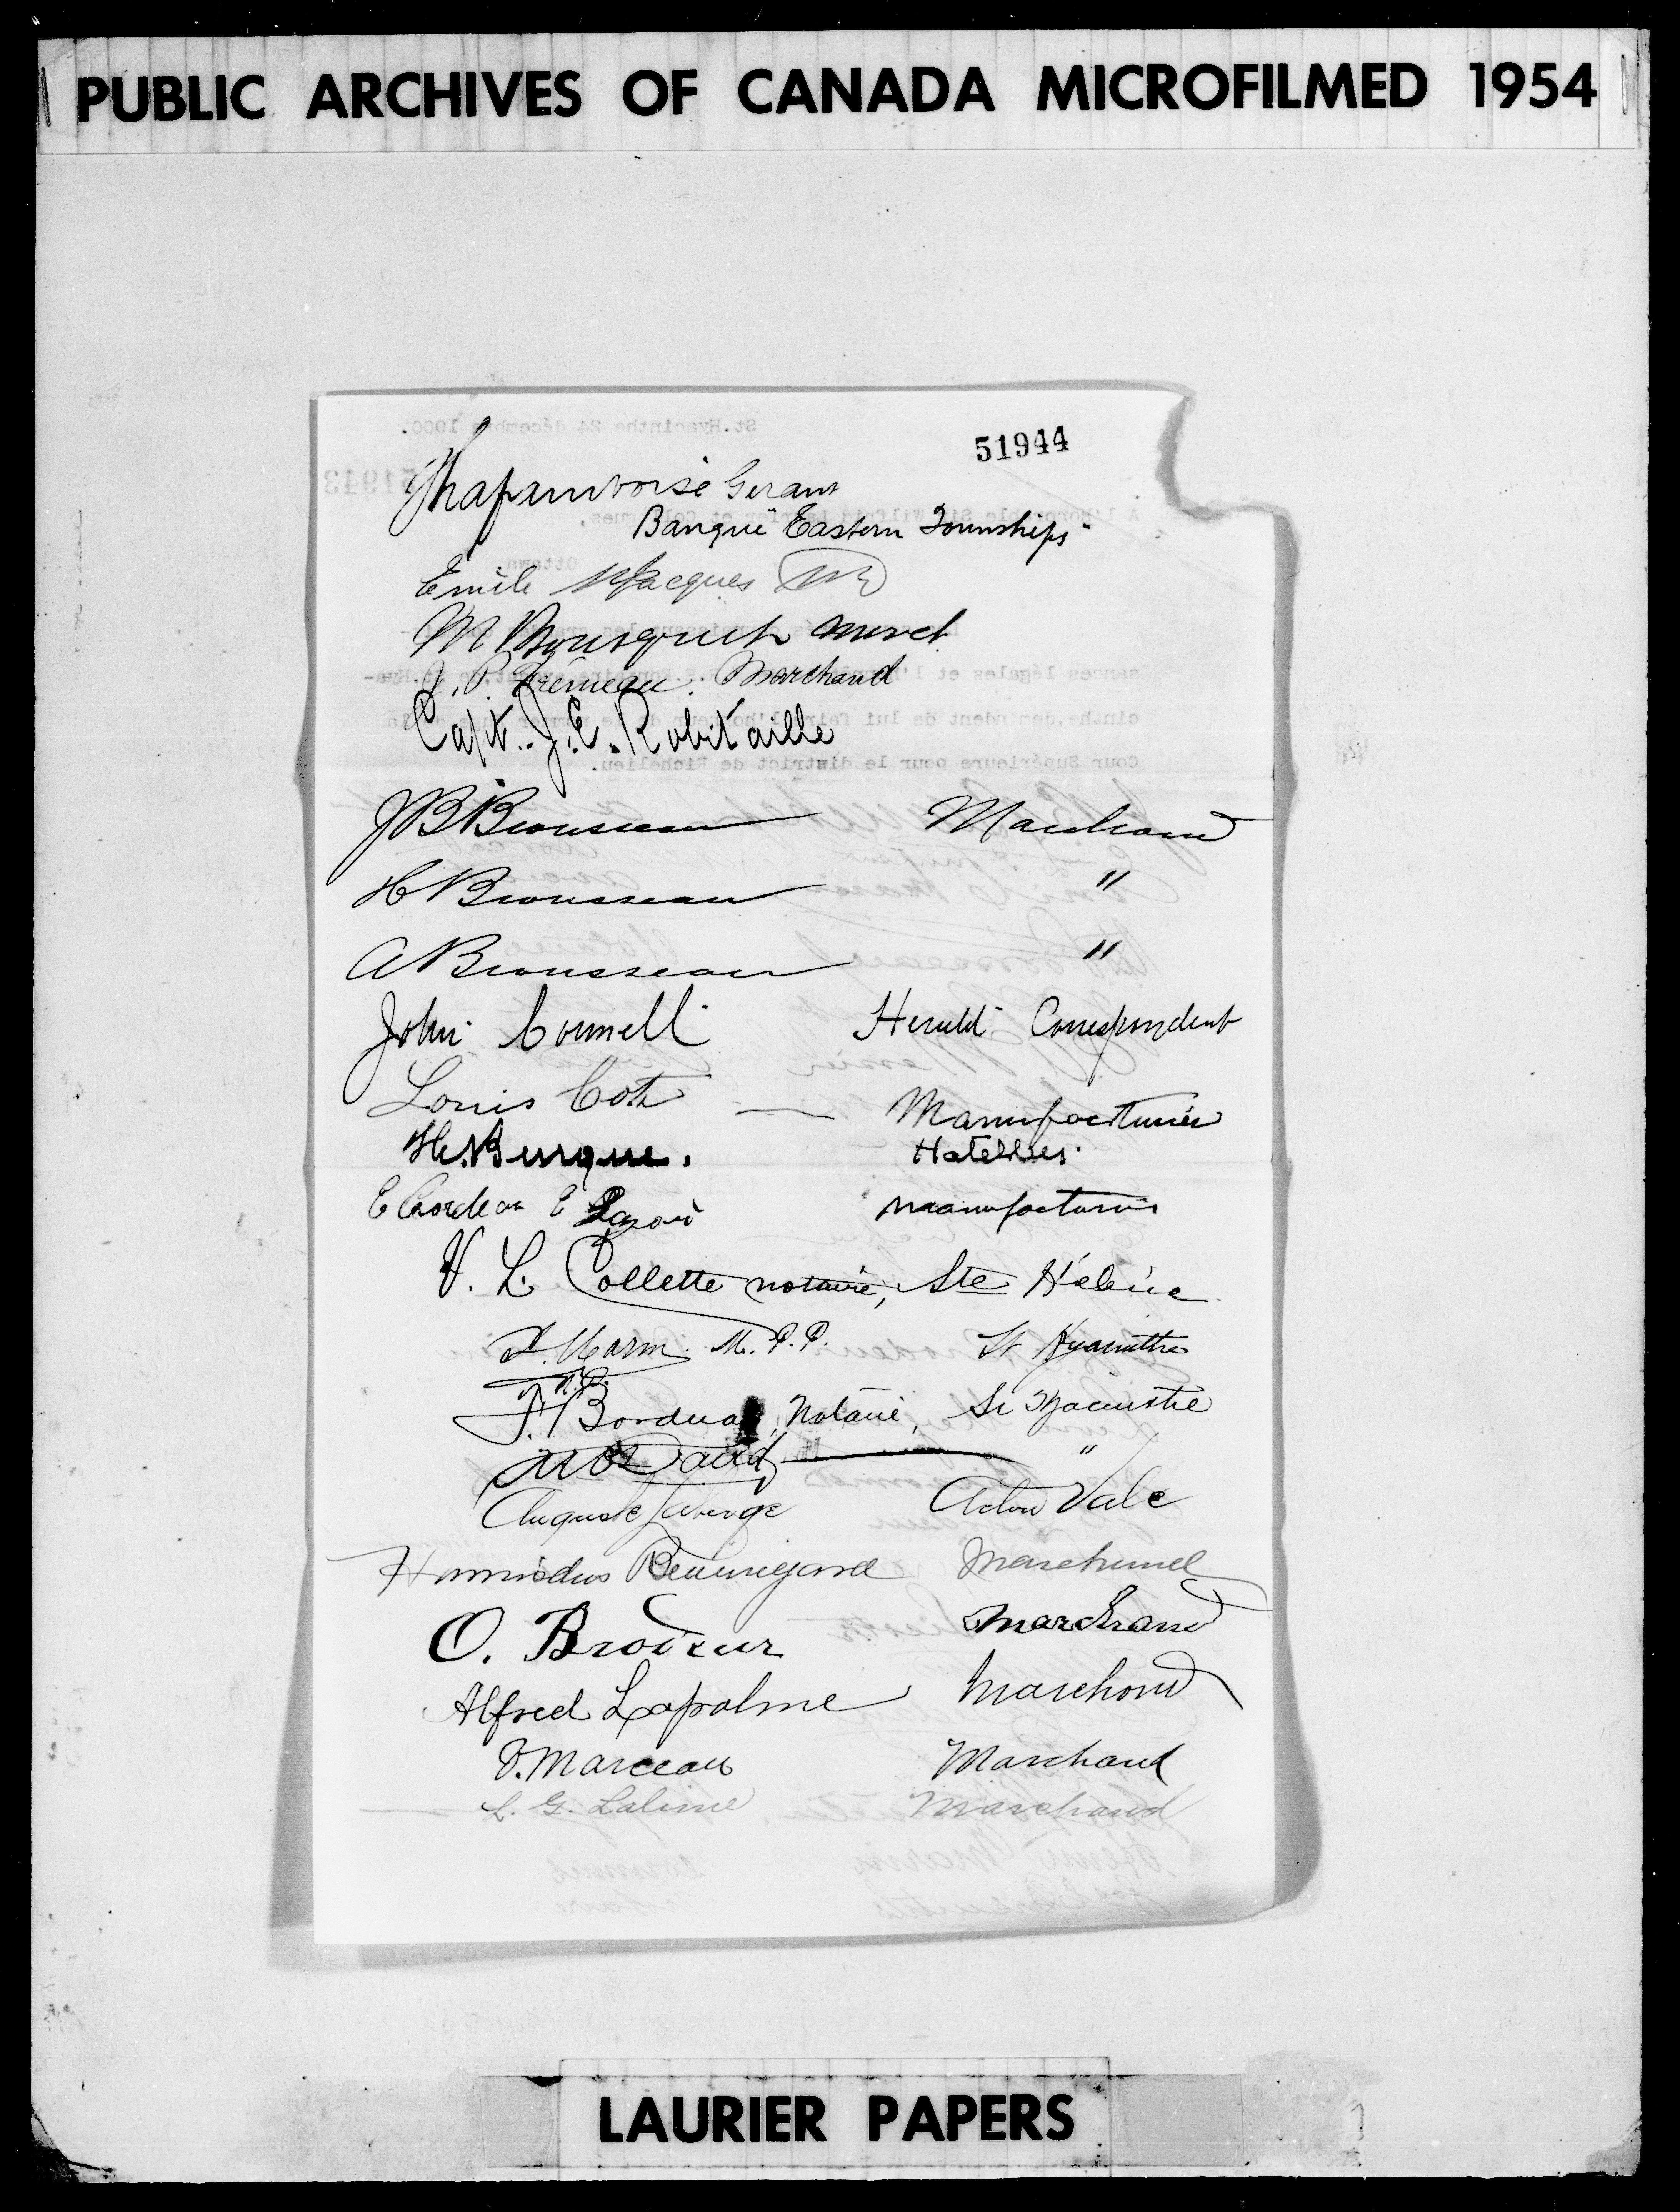 PUBLIC ARCHIVES OF CANADA MICROFILMED 1954
51944
Gerant
Banque Eastern Townships
Emile Jacques
M Bousquet March
J. P. Frémeau. Marchand
Capt. J. E. Robitaille
J B Brousseau Marchand
H Brousseau "
A Brousseau "
John Connell Herald Correspondent
Louis Coté — Manufacturier
H. Burque.
E manufacturier
V. L. Collette notaire, Ste Hélène
M. P. P. St Hyacinthe
Borduas, Notaire, St Hyacinthe
"
Auguste Laberge Acton Vale
Beauregard Marchand
O. Brodeur Marchand
Alfred Lapalme Marchand
J. Marceau Marchand
L. G. Lalime Marchand
LAURIER PAPERS